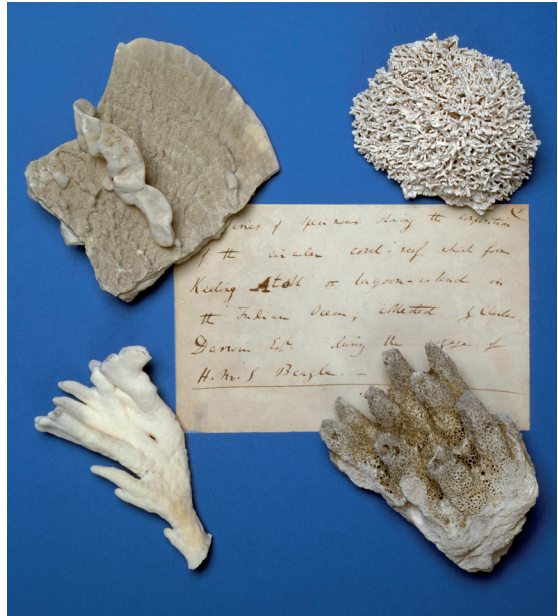 series of specimens showing the composition
of the circular coral-reef, which form
Keeling Atoll or lagoon-island in
the Indian Ocean; collected by Charles
Darwin Esqr. during the voyage of
H.M.S Beagle. —